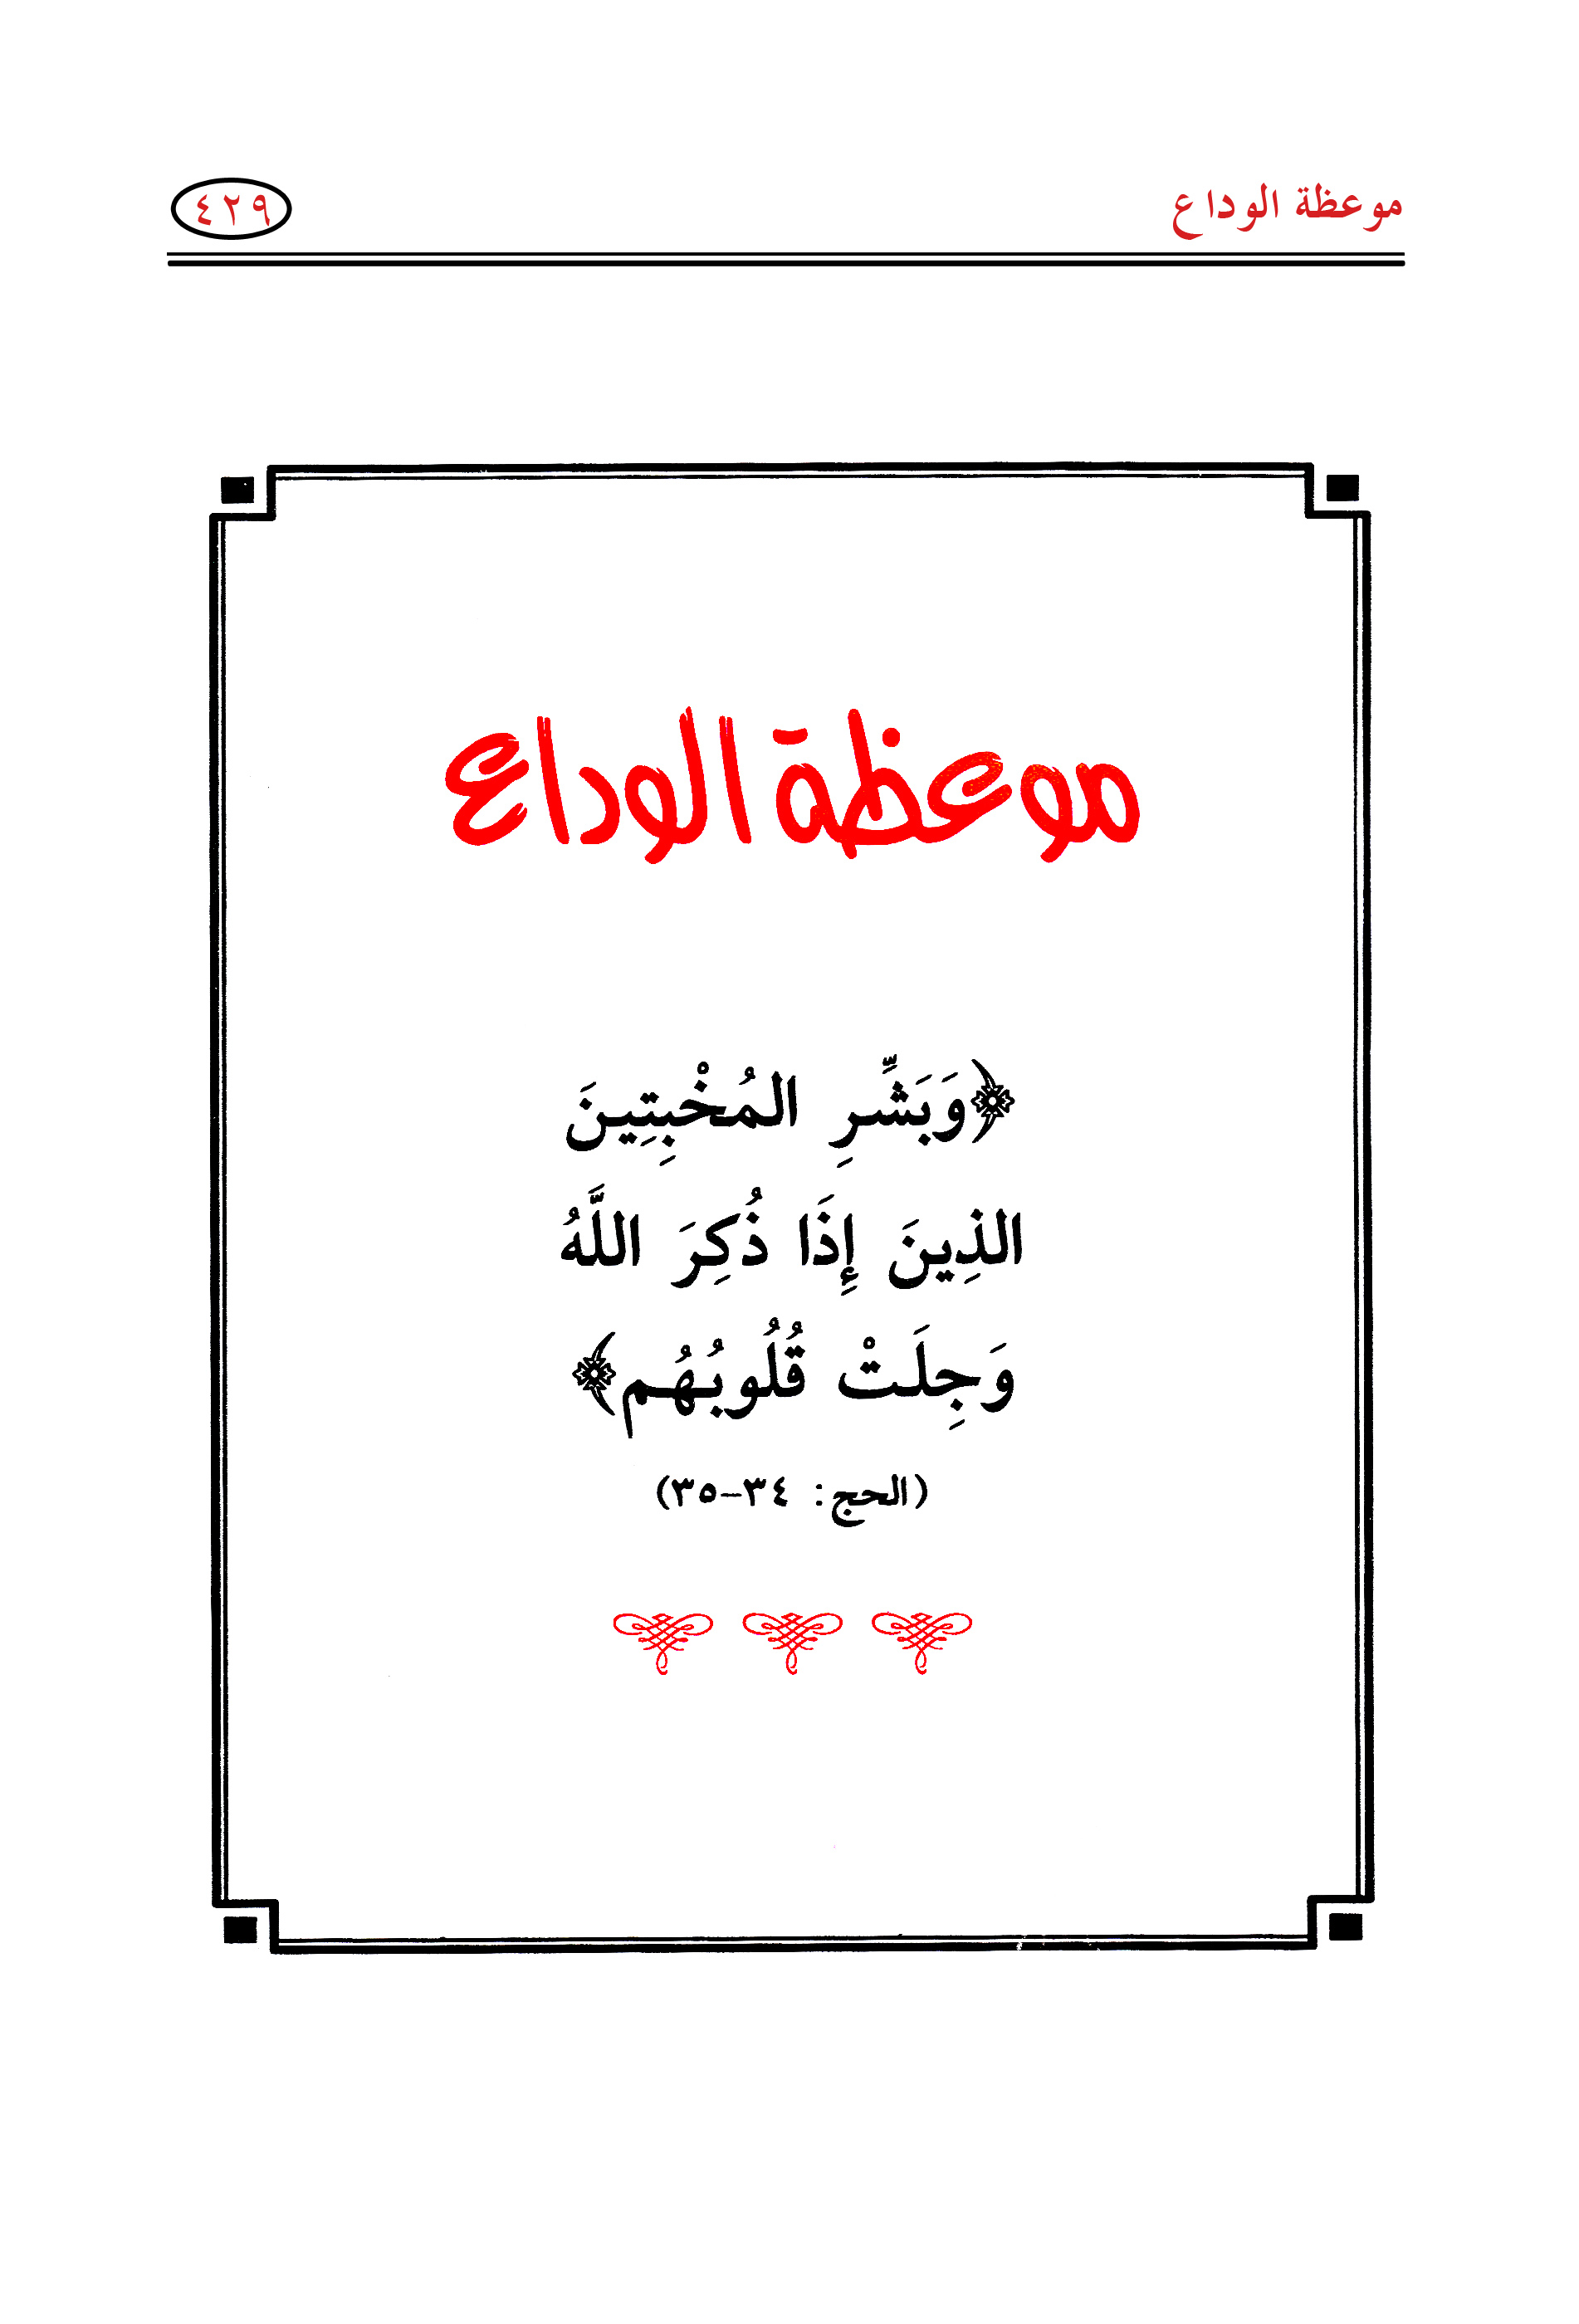 موعظة الوداع
٤٢٩
موعظة الوداع
﴿وَبَشِّرِ المُخْبِتِينَ
الذِينَ إِذَا ذُكِرَ اللَّهُ
وَجِلَتْ قُلُوبُهُم﴾
(الحج: ٣٤-٣٥)